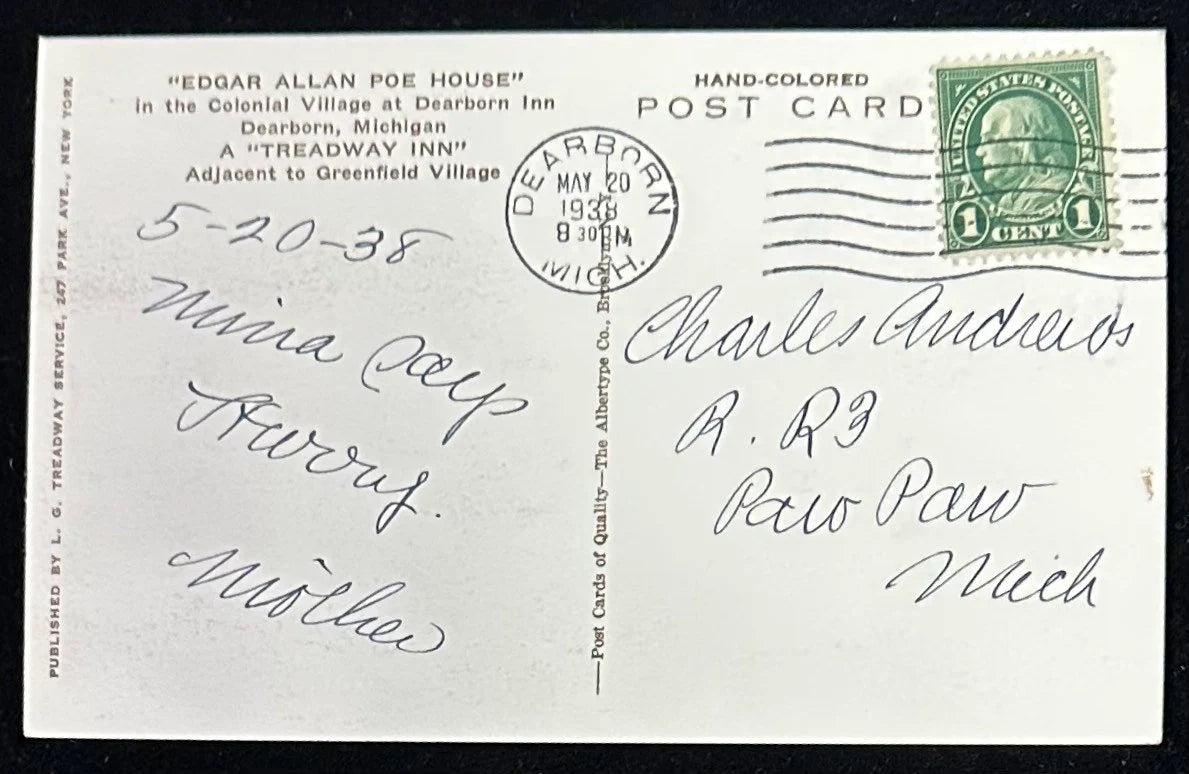 "EDGAR ALLAN POE HOUSE"
in the Colonial Village at Dearborn Inn
Dearborn, Michigan
A "TREADWAY INN"
Adjacent to Greenfield Village
HAND-COLORED
POST CARD
UNITED STATES POSTAGE
1 CENT 1
DEARBORN
MAY 20
1938
8 30 PM
MICH.
5-20-38
Mina says
Hurry.
Mother
Charles Andrews
R. R3
Paw Paw
Mich
PUBLISHED BY L. G. TREADWAY SERVICE, 247 PARK AVE., NEW YORK
—Post Cards of Quality—The Albertype Co., Brooklyn